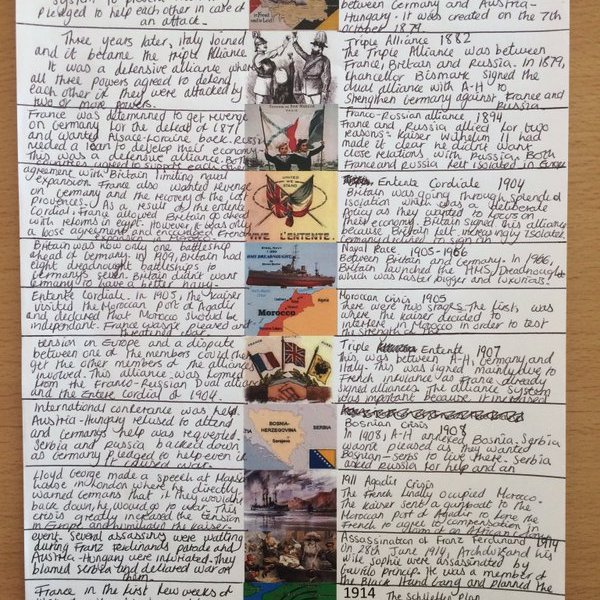 system to
pledged to help each other in case of
an attack.
between Germany and Austria-
Hungary. it was created on the 7th
october 1879
Three years later, italy joined
and it became the triple Alliance
it was a defensive alliance where
all three powers agreed to defend
each other if they were attacked by
two or more powers.
Triple Alliance 1882
The Triple Alliance was between
France, Britain and Russia. In 1879,
Chancellor Bismark signed the
dual alliance with A-H to
strengthen Germany against France and
Russia
France was determined to get revenge
on Germany for the defeat of 1871
and wanted Alsace-Loraine back. Russia
needed a loan to develop their economy
This was a defensive alliance. Both
countries agreed to support each other
Franco-Russian alliance 1894
France and Russia allied for two
reasons. Kaiser Wilhelm II had
made it clear he didn't want
close relations with Russia. Both
France and Russia felt isolated in Europe
agreement with Britain limiting naval
expansion. France also wanted revenge
on Germany and the recovery of the lost
provences. As a result of the entente
Cordial, France allowed Britain go ahead
with reforms in egypt. However it was only
a loose agreement and encouraged French
expansion in Morocco
UNITED WE STAND
VIVE L'ENTENTE.
Entente Cordiale 1904
Britain was going through Splendid
Isolation which was a deliberate
Policy as they wanted to focus on
their economy. Britain signed this alliance
because Britain felt increasingly isolated
Germany refused to sign an
Britain was exactly one battleship
ahead of Germany. in 1909, Britain had
eight dreadnought battleships to
Germanys seven. Britain didn't want
Germany to have a better navy.
HMS DREADNOUGHT
Naval Race 1905-1966
Between Britain and Germany. In 1966,
Britain launched the HMS Dreadnought
which was faster bigger and luxurious!
Entente Cordial. in 1905, the Kaiser
visited the Moroccan Port of Agadir
and declared that Morocco should be
independent. France wasn't scared and
threatened war
Morocco
Morocan Crisis 1905
There were two stages. The first was
where the Kaiser decided to
interfere in Morocco in order to test
the strength of the
tension in Europe and a dispute
between one of the members could then
get the other members of the alliance
involved. This alliance was formed
from the Franco-Russian Dual alliance
and the Entente Cordial of 1904.
Triple Entente 1907
This was between A-H, Germany and
Italy. This was signed mainly due to
French insistance as France already
signed alliances. The alliance system
was important because it increased
International conference was held
Austria-Hungary refused to attend
and Germanys help was requested.
Serbia and russia backed down
as Germany pledged to help even if
it caused war
BOSNIA-
HERZEGOVINA
Sarajevo
SERBIA
Bosnian Crisis
1908
In 1908, A-H annexed Bosnia. Serbia
wasn't pleased as they wanted
Bosnian-Serbs to live there. Serbia
asked russia for help and an
Lloyd George made a speech at Mansion
house in London where he directly
warned Germans that if they wouldn't
back down, he would go to war. This
crisis greatly increased the tension
in Europe and humiliated the Kaiser.
1911 Agadir Crisis
The French finally occupied Morocco.
The Kaiser sent a gunboat to the
Moroccan Port of Agadir to force the
French to agree to compensation in
event. Several assassins were waiting
during Franz Ferdinands parade and
Austria-Hungary were infuriated. They
blamed Serbia and delared war on
them.
Assassination of Franz Ferdinand 1914
on 28th June 1914, Archduke and his
wife sophie were assassinated by
Gavrilo Princip. He was a member of
the Black Hand Gang and planned the
France in the first few weeks of
1914
The Schlieffen Plan